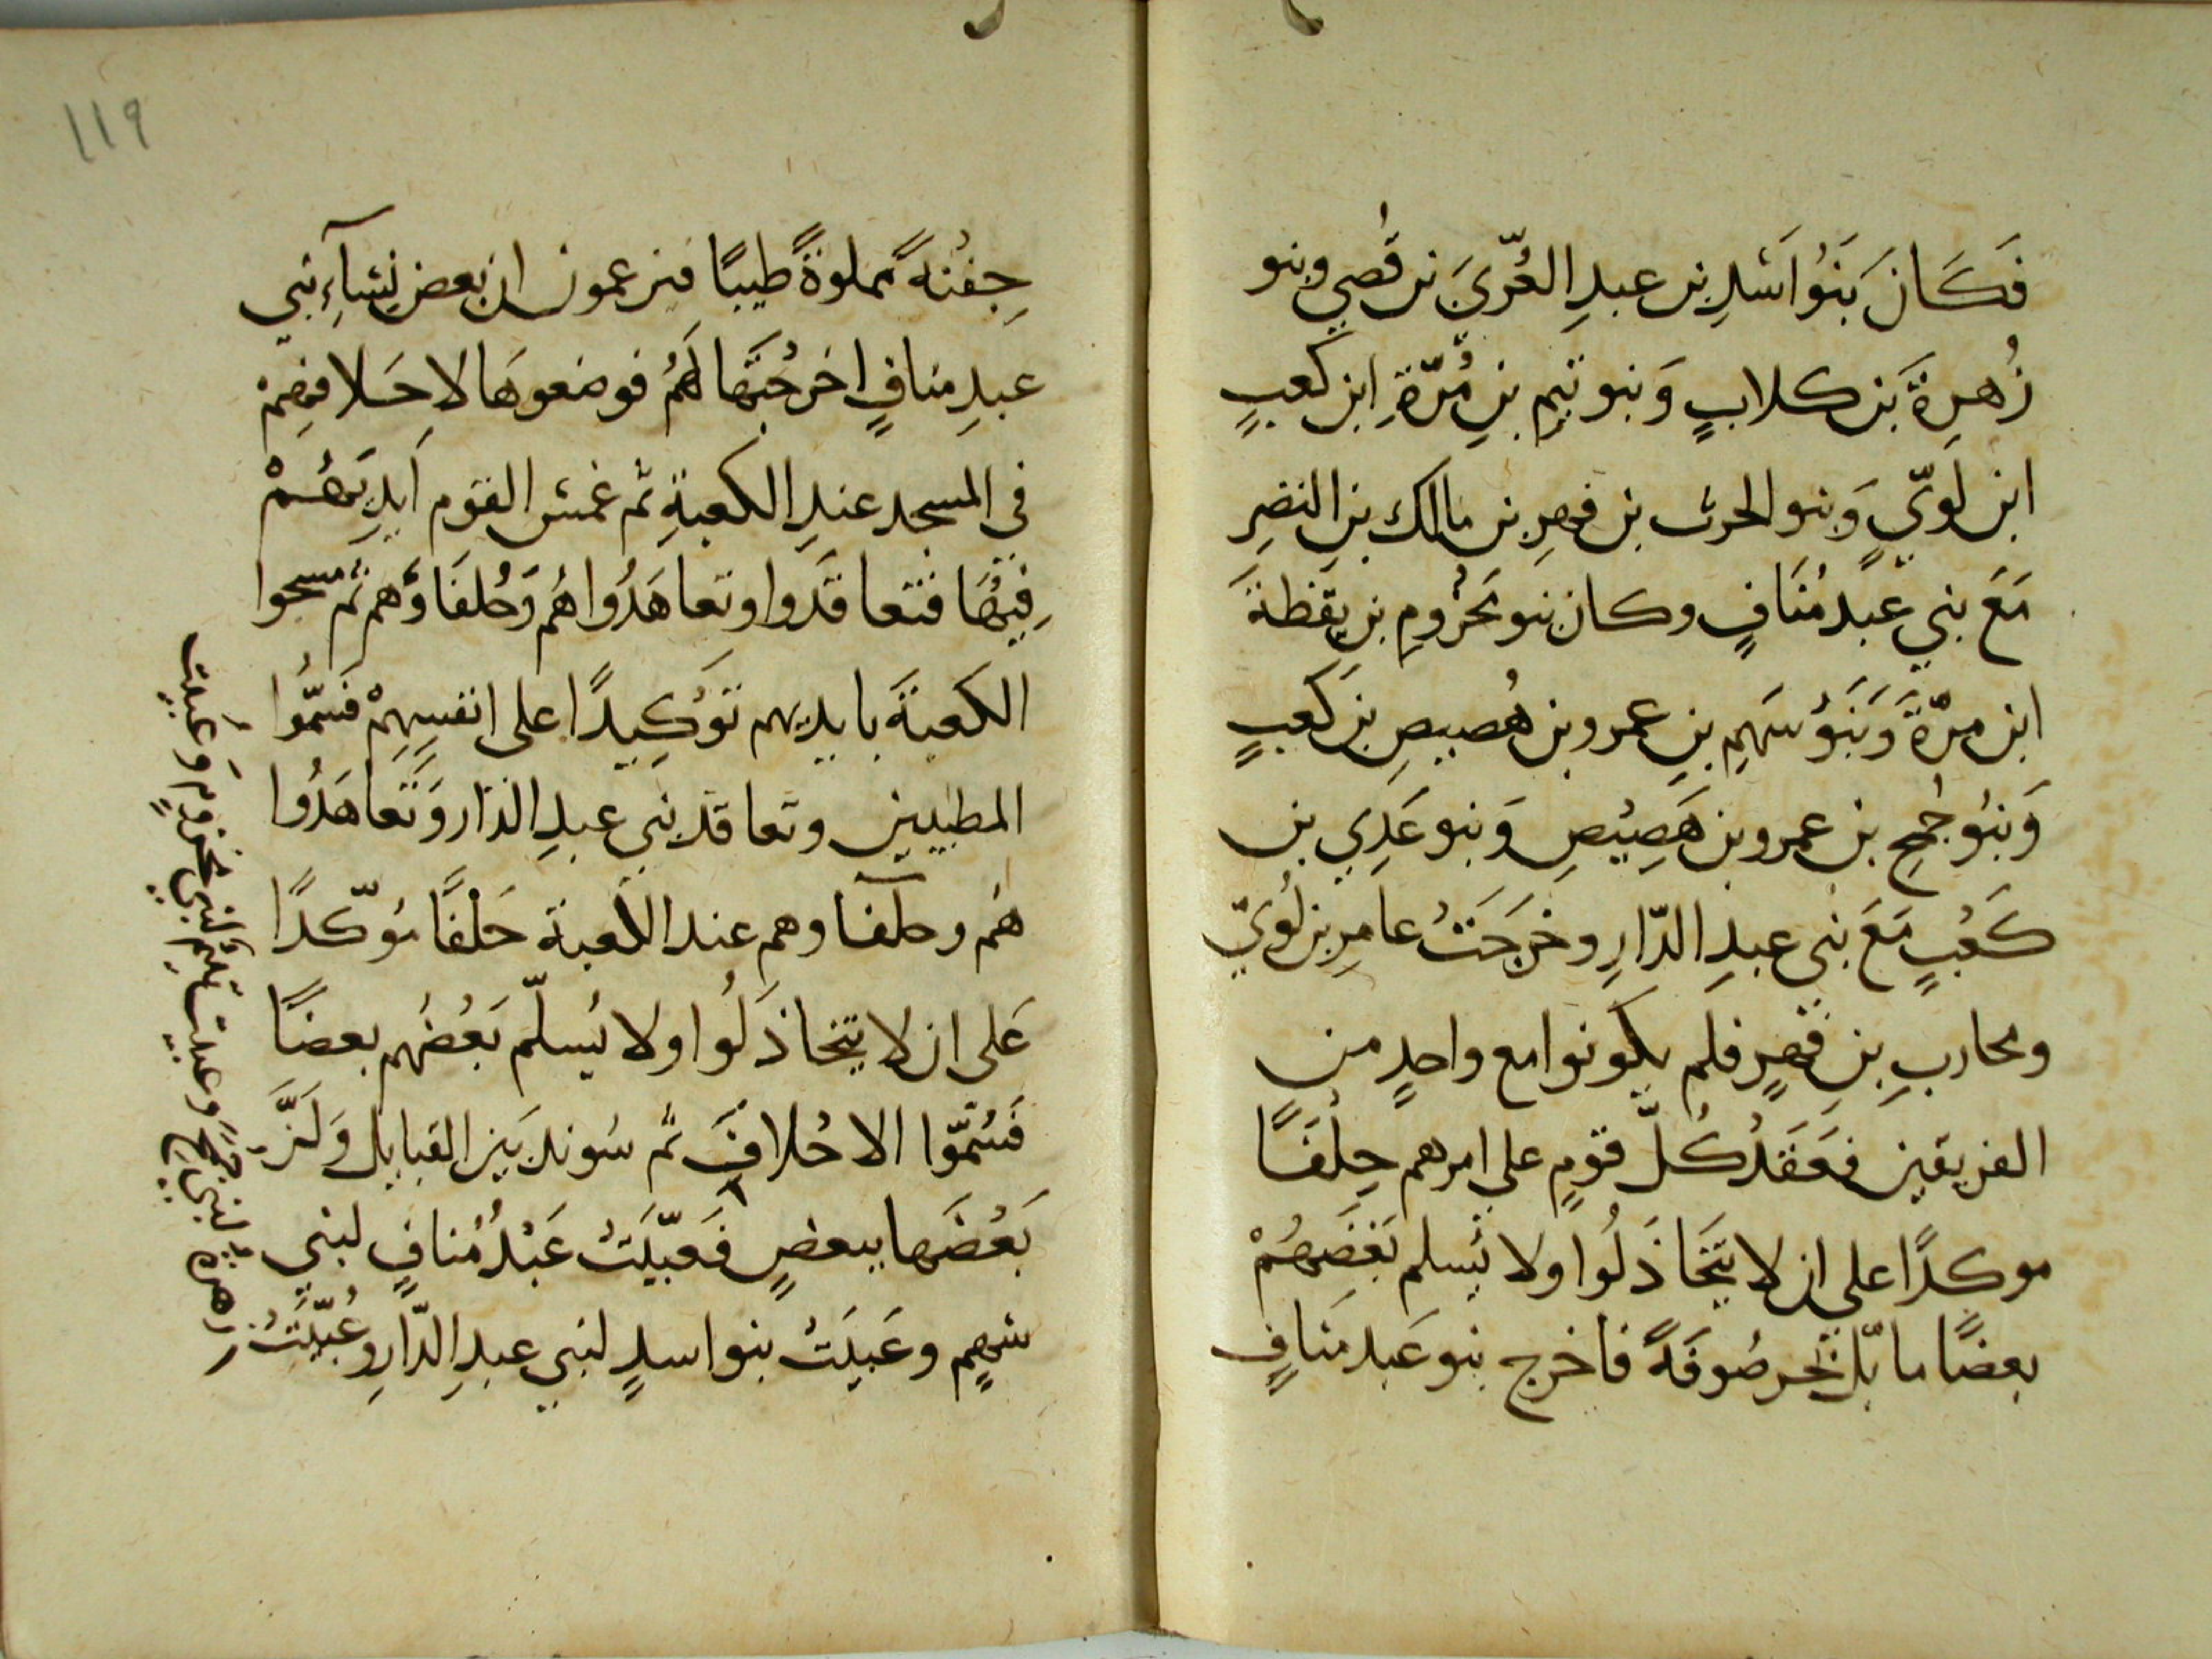 فَكَانَ بَنُوا سَدِ بن عبدِ العُزّيَ بن قُصي وبنو
زُهرِةَ بَن كلابٍ وَبنو تيمِ بنِ مُرّةِ ابن كعبٍ
ابن لَويّ وَبنو الحرث بن فهرِ بن مالك بن النضرِ
مَعَ بني عَبدِ مُنَافٍ وكان بنو مخزُومِ بن يقظةَ
ابن مرّةَ وَبَنَوُ سَهمِ بنِ عمرو بن هُصيصِ بن كعبٍ
وَبنُو جُمحِ بن عمرو بن هَصِيُصِ وَبنو عَدِي بن
كَعُبٍ مَعَ بني عبدِ الدّارِ وخرَجَتُ عامرِ بن لُويّ
ومحاربِ بنِ فهرٍ فلم يكونوا مع واحدٍ من
الفريقين فعَقَدُ كُلّ قومٍ علي امرهم حِلفًا
موكدًا على ان لا يتَخَاذَلُوا ولا يُسلم بَعضَهُمْ
بعضًا ما بَلّ بحر صُوفَةً فاخرج بنو عَبدِ مَنافٍ
١١٩
جِفنُةً مملوةً طيبًا فيزعمون ان بعض نِسَآءِ بني
عبدِ منافٍ اخرجُتَها لَهمُ فوضعوهَا لاحلافهمْ
في المسجد عندِ الكعبةِ ثم غمسَ القوم اَيدِيَهُمْ
فِيهَا فتعاقَدوا وتعاهَدُوا هُم وَحُلفَاؤهم ثم مسحوا
الكعبةَ بايديهم توَكِيدًا على انفسِهِمْ فسَمُّوا
المطيبين وتعاقد بَني عبدِ الدّار وَتَعاهَدُوا
هُم وحلفاوهم عند الكعبة حَلْفًا موّكدًا
عَلى ان لا يتخاذَلُوا ولا يُسلّم بَعُضُهم بعضًا
فَسُمّوا الاحُلافَ ثم سُوند بَين القبايل وَلَزَّ
بَعُضَها ببعضٍ فَعَبّيَتُ عَبْدُ مُنافٍ لبني
سَهمٍ وعَبيَتُ بنوا سدٍ لبني عبدِ الدّارِ وعُبّيَتُ
زهرة لبني جمحَ وعبيت تيم لبني مخزومٍ وَعَبيت